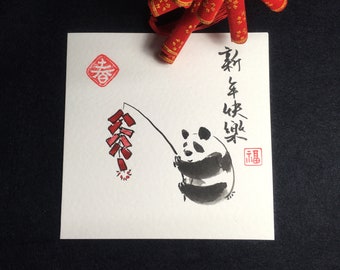 新年快樂
福
春